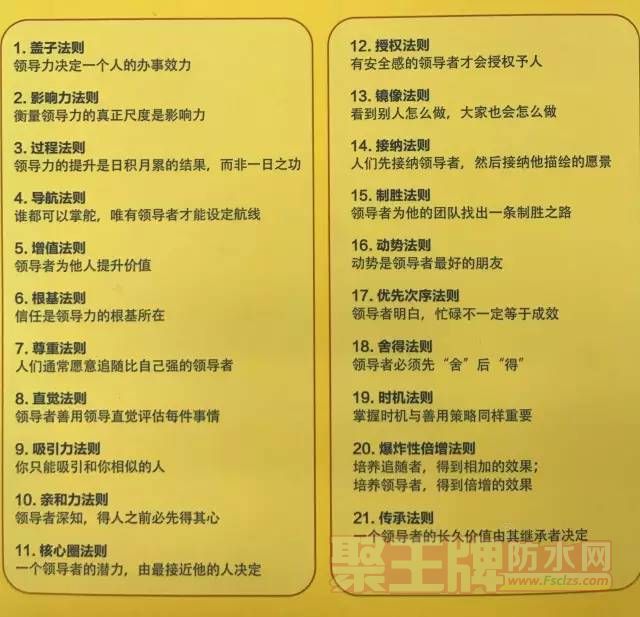 1. 盖子法则
领导力决定一个人的办事效力
2. 影响力法则
衡量领导力的真正尺度是影响力
3. 过程法则
领导力的提升是日积月累的结果，而非一日之功
4. 导航法则
谁都可以掌舵，唯有领导者才能设定航线
5. 增值法则
领导者为他人提升价值
6. 根基法则
信任是领导力的根基所在
7. 尊重法则
人们通常愿意追随比自己强的领导者
8. 直觉法则
领导者善用领导直觉评估每件事情
9. 吸引力法则
你只能吸引和你相似的人
10. 亲和力法则
领导者深知，得人之前必先得其心
11. 核心圈法则
一个领导者的潜力，由最接近他的人决定
12. 授权法则
有安全感的领导者才会授权予人
13. 镜像法则
看到别人怎么做，大家也会怎么做
14. 接纳法则
人们先接纳领导者，然后接纳他描绘的愿景
15. 制胜法则
领导者为他的团队找出一条制胜之路
16. 动势法则
动势是领导者最好的朋友
17. 优先次序法则
领导者明白，忙碌不一定等于成效
18. 舍得法则
领导者必须先“舍”后“得”
19. 时机法则
掌握时机与善用策略同样重要
20. 爆炸性倍增法则
培养追随者，得到相加的效果；
培养领导者，得到倍增的效果
21. 传承法则
一个领导者的长久价值由其继承者决定
聚王牌防水网
www.Fsclzs.com